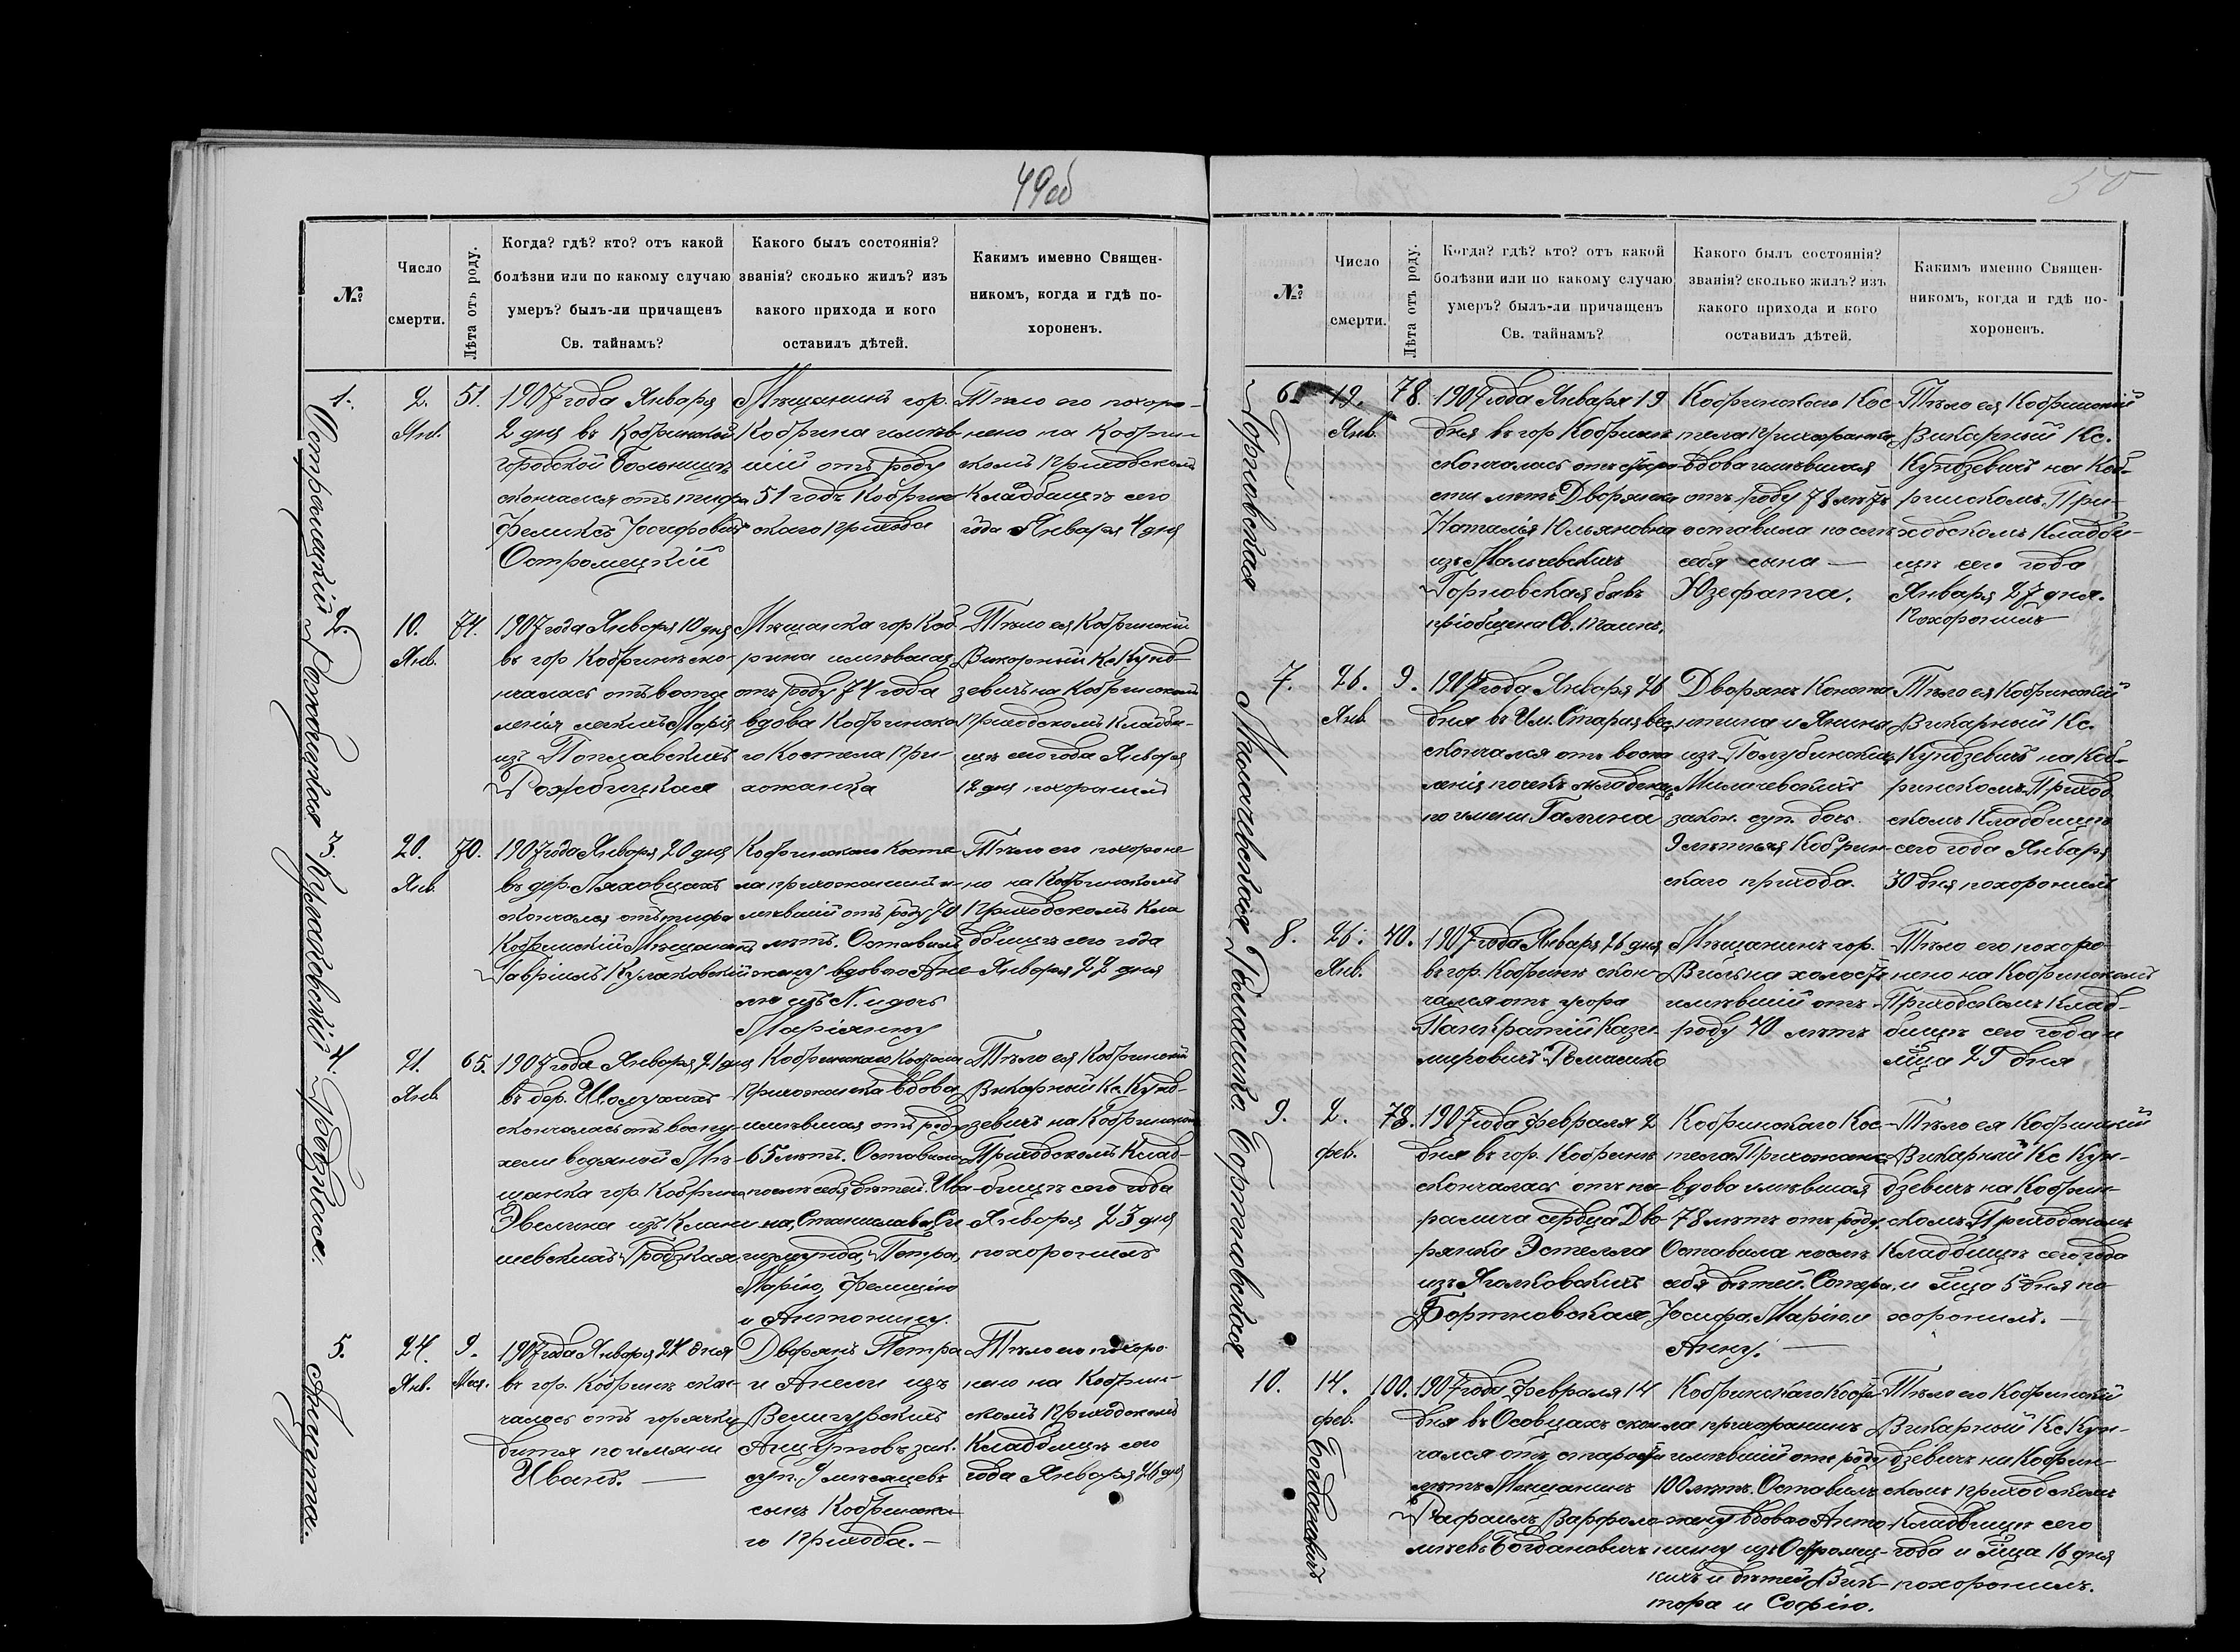 49об
№
Число
смерти.
Лѣта отъ роду.
Когда? гдѣ? кто? отъ какой
болѣзни или по какому случаю
умеръ? былъ-ли причащенъ
Св. тайнамъ?
Какого былъ состоянія?
званія? сколько жилъ? изъ
какого прихода и кого
оставилъ дѣтей.
Какимъ именно Священ-
никомъ, когда и гдѣ по-
хороненъ.
1.
Остромецкій
2.
Янв.
51.
1907 года Января
2 дня въ Кобринской
городской больницѣ
скончался отъ тифа
Феликсъ Іосифовичъ
Остромецкій
Мѣщанинъ гор.
Кобрина имѣв-
шій отъ роду
51 годъ Кобрин-
скаго прихода
Тѣло его похоро-
нено на Кобрин-
скомъ Приходскомъ
Кладбищѣ сего
года Января 4 дня
2.
10.
Янв.
74.
1907 года Января 10 дня
въ гор Кобринѣ ско-
нчалась отъ воспа
ленія легкихъ Марія
изъ Поплавскихъ
Мѣщанка гор Коб-
рина имѣвшая
отъ роду 74 года
вдова Кобринска
го Костела При-
хожанка
Тѣло ея Кобринскій
Викарный Кс Кунд-
зевичъ на Кобринскомъ
Приходскомъ Кладби-
щѣ сего года Января
12 дня похоронилъ
3.
Кулаковскій
20.
Янв.
70.
1907 года Января 20 дня
въ дер. Ляховцахъ
скончался отъ тифа
Кобринскій Мѣщанинъ
Гавріилъ Кулаковскій
Кобринскаго Косте
ла прихожанинъ и-
мѣвшій отъ роду 70
лѣтъ. Оставилъ
жену вдовою Ане
лю изъ N. и дочь
Маріянну
Тѣло его похороне
но на Кобринскомъ
Приходскомъ Кла
дбищѣ сего года
Января 22 дня
4.
Гродзкая.
21.
Янв.
65.
1907 года Января 21 дня
въ дер.
скончалась отъ вспу-
хели водяной Мѣ-
щанка гор. Кобрина
Эвелина изъ
шевскихъ Гродзкая
Кобринскаго Костела
Прихожанка вдова
имѣвшая отъ роду
65 лѣтъ. Оставила
послѣ себя дѣтей: Ива-
на, Станислава, Си
гизмунда, Петра,
Марію, Фелицію
и Антонину.
Тѣло ея Кобринскій
Викарный Кс. Кунд-
зевичъ на Кобринскомъ
Приходскомъ Клад-
бищѣ сего года
Января 23 дня
похоронилъ
5.
24.
Янв.
9.
Мѣс.
1907 года Января 24 дня
въ гор. Кобринѣ скон-
чалось отъ горячки
дитя по имени
Иванъ. —
Дворянъ Петра
и Анели изъ
суп. 9 мѣсяцевъ
сынъ Кобринска-
го Прихода. —
Тѣло его похоро-
нено на Кобрин-
скомъ Приходскомъ
Кладбищѣ сего
года Января 26 дня
50
№
Число
смерти.
Лѣта отъ роду.
Когда? гдѣ? кто? отъ какой
болѣзни или по какому случаю
умеръ? былъ-ли причащенъ
Св. тайнамъ?
Какого былъ состоянія?
званія? сколько жилъ? изъ
какого прихода и кого
оставилъ дѣтей.
Какимъ именно Священ-
никомъ, когда и гдѣ по-
хороненъ.
6.
Горновская
19.
Янв.
78
1907 года Января 19
дня въ гор Кобринѣ
скончалась отъ старо
сти лѣтъ Дворянка
Наталія Юльяновна
Горновская бывъ
пріобщена Св. Таинъ.
Кобринскаго Кос-
тела Прихожанка
вдова имѣвшая
отъ роду 78 лѣтъ
оставила послѣ
себя сына —
Юзефата.
Тѣло ея Кобринскій
Викарный Кс.
Кундзевичъ на Коб-
ринскомъ При-
ходскомъ Кладби-
щѣ сего года
Января 27 дня.
похоронилъ
7.
Милачевская
26.
Янв
9.
1907 года Января 26
дня въ Им.
скончался отъ воспа
ленія почекъ младенецъ
по имени Галина
Дворянъ Конста
нтина и Янины
изъ Голубинскихъ
Милачевскихъ
закон. суп. дочь
9 лѣтняя Кобрин-
скаго прихода.
Тѣло ея Кобринскій
Викарный Кс.
Кундзевичъ на Коб-
ринскомъ Приход
скомъ Кладбищѣ
сего года Января
30 дня похоронилъ
8.
Ромашко.
26.
Янв.
40.
1907 года Января 26 дня
въ гор. Кобринѣ скон-
чался отъ угара
Панкратій Кази-
мировичъ Ромашко
Мѣщанинъ гор.
Вильна холостъ
имѣвшій отъ
роду 40 лѣтъ
Тѣло его похоро-
нено на Кобринскомъ
Приходскомъ Клад-
бищѣ сего года и
мѣца 29 дня
9.
Бортновская
2.
фев.
78.
1907 года февраля 2
дня въ гор. Кобринѣ
скончалась отъ па-
ралича сердца Дво-
рянка Эстелла
Бортновская
Кобринскаго Кос-
тела Прихожанка
вдова имѣвшая
78 лѣтъ отъ роду.
Оставила послѣ
себя дѣтей:
Іосифа, Марію и
Анну. —
Тѣло ея Кобринскій
Викарный Кс Кун-
дзевичъ на Кобрин-
скомъ Приходскомъ
Кладбищѣ сего года
и мѣца 5 дня по-
хоронилъ. —
10.
Богдановичъ
14.
фев.
100.
1907 года февраля 14
дня въ Осовцахъ скон-
чался отъ старости
лѣтъ Мѣщанинъ
Рафаилъ Варфоло-
мѣевъ Богдановичъ
Кобринскаго Косте
ла прихожанинъ
имѣвшій отъ роду
100 лѣтъ. Оставилъ
жену вдовою Анто-
нину изъ Остромец-
кихъ и дѣтей Вик-
тора и Софію.
Тѣло его Кобринскій
Викарный Кс Кун-
дзевичъ на Кобрин-
скомъ приходскомъ
Кладбищѣ сего
года и мѣца 16 дня
похоронилъ.